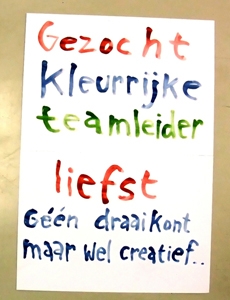 Gezocht
Kleurrijke
teamleider
liefst
Géén draaikont
maar wel creatief..